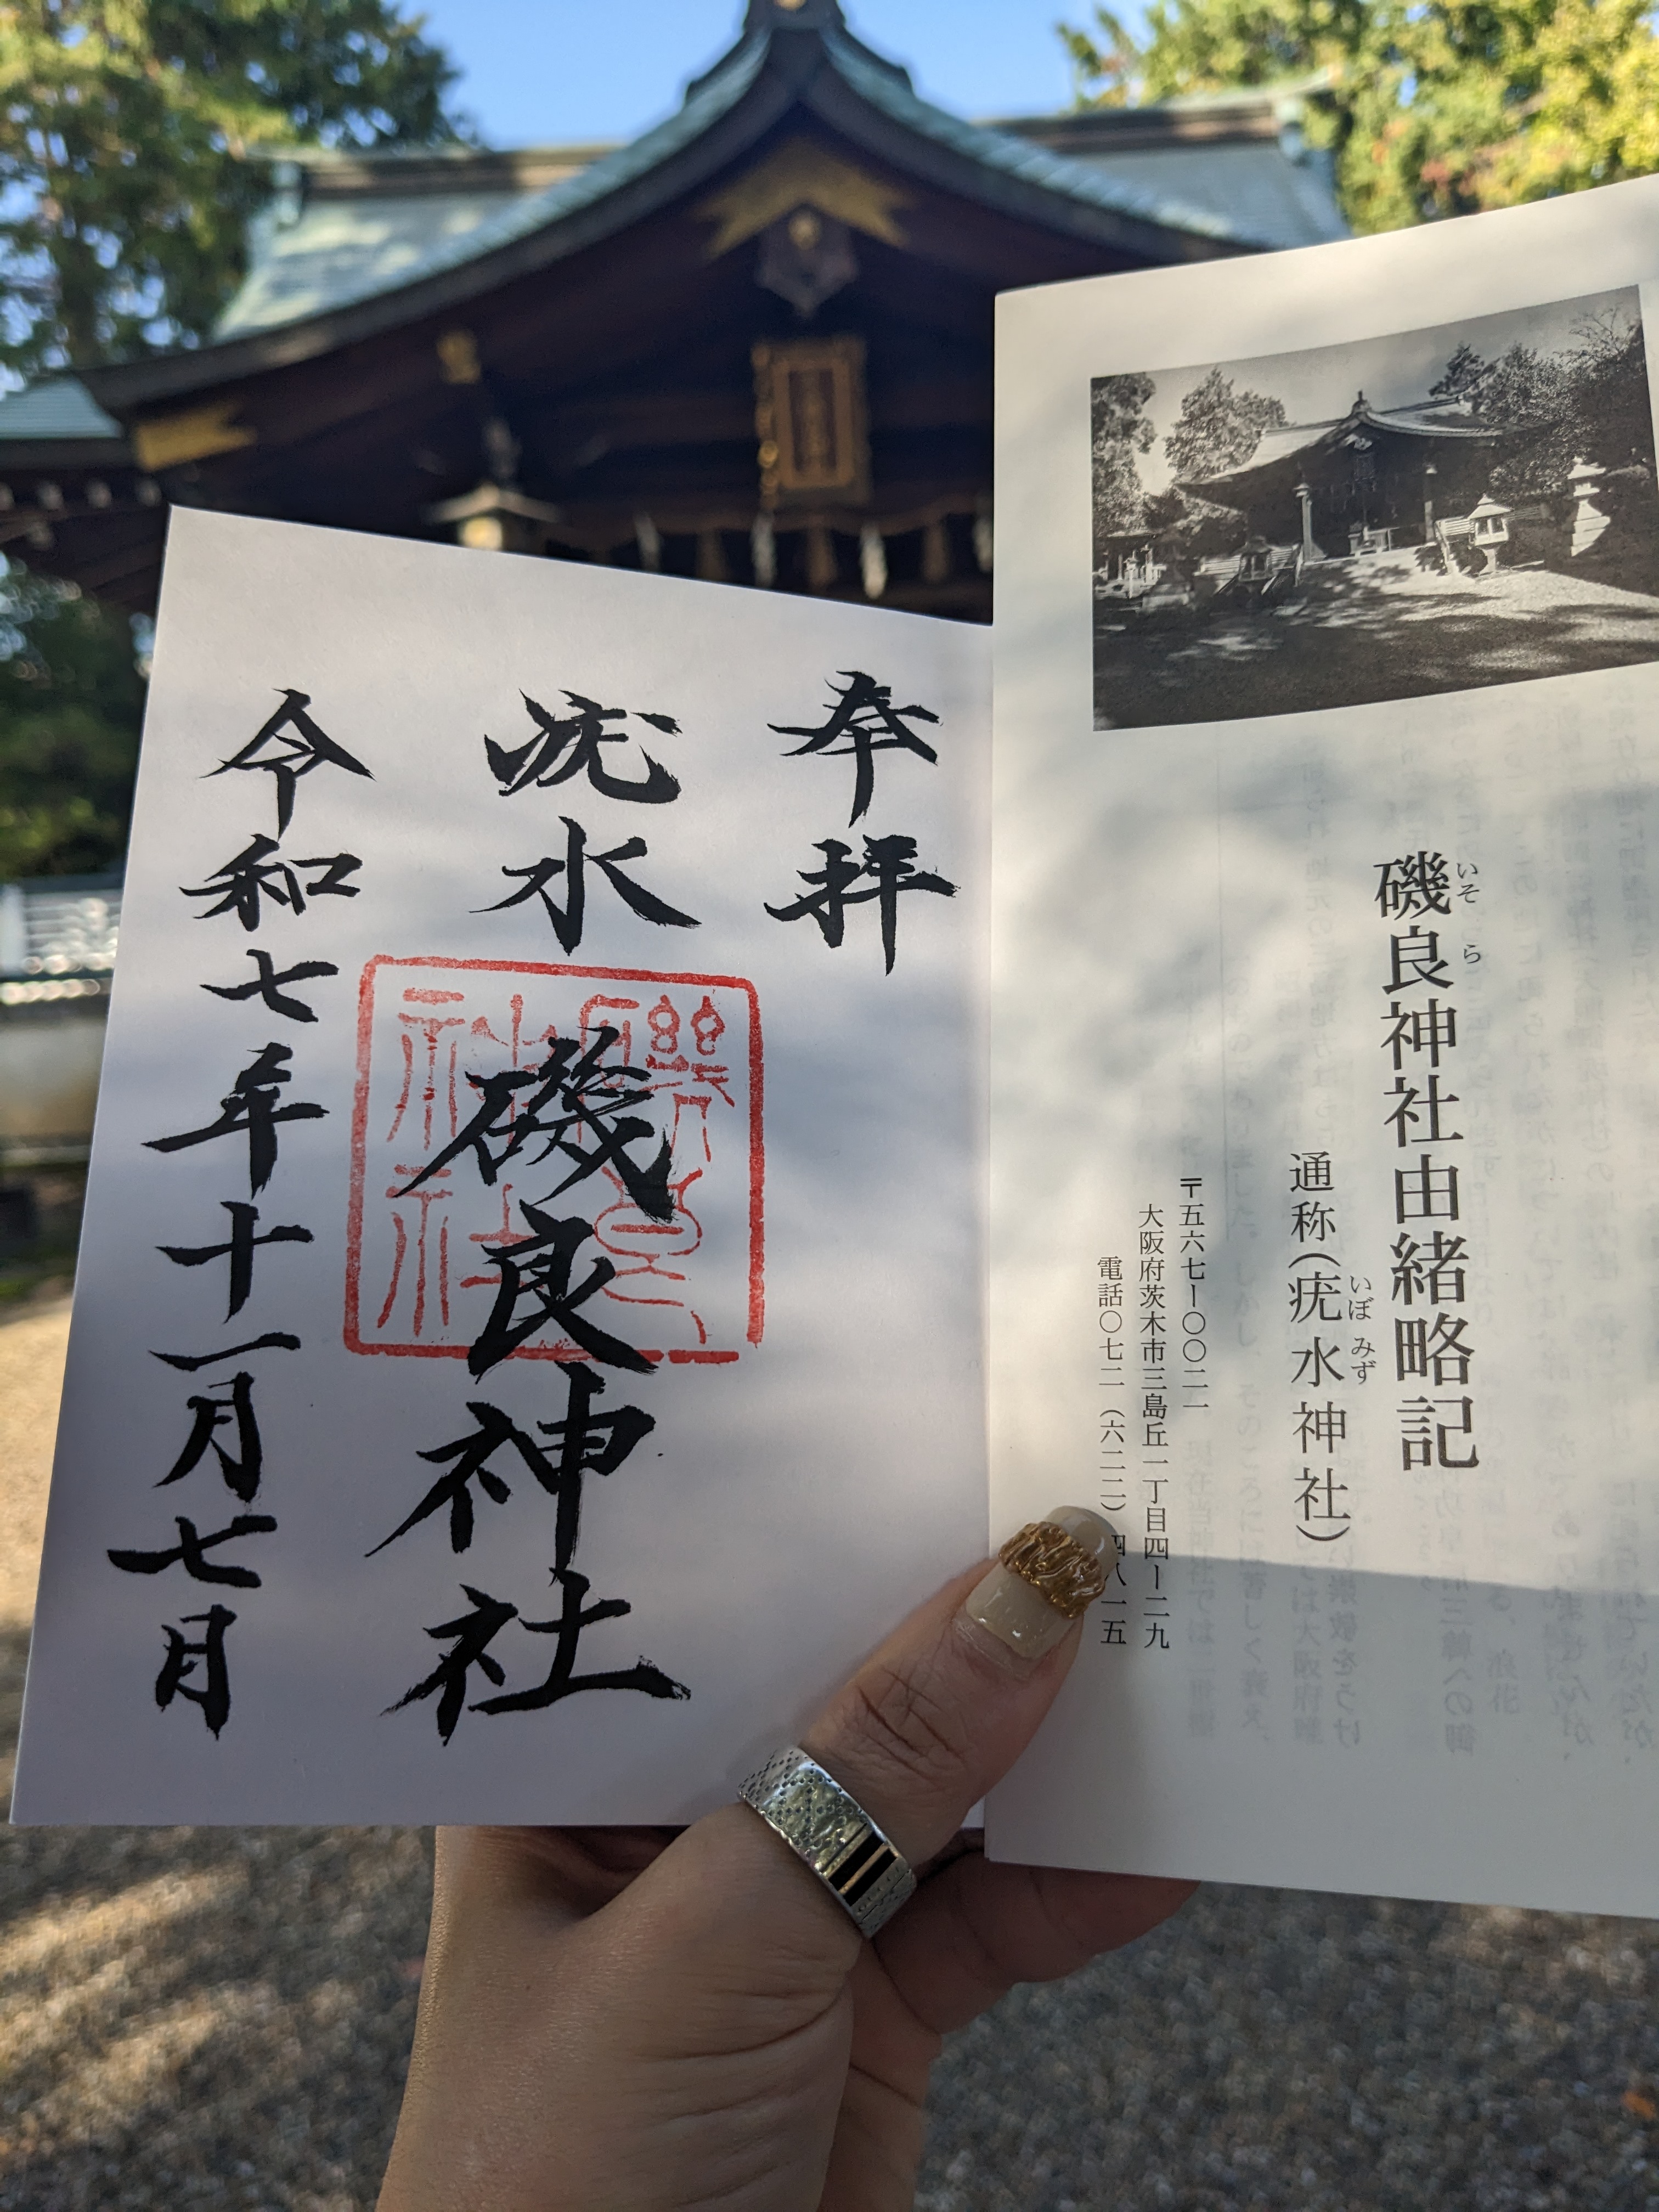 磯良神社由緒略記
いそら
通称(疣水神社)
いぼみず
〒五六七ー〇〇二一
大阪府茨木市三島丘一丁目四ー二九
電話〇七二(六二二)四八一五
奉拝
疣水 磯良神社
令和七年十一月七日
磯良神社